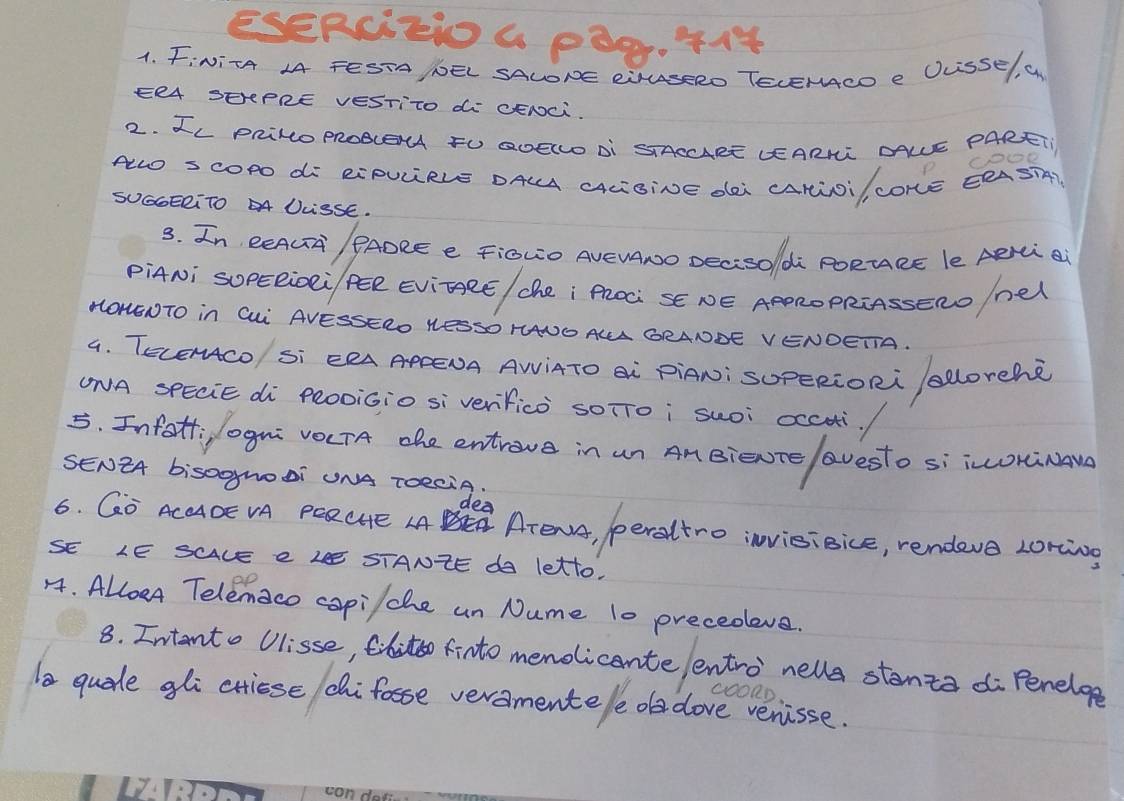 ESERCIZIO 4 pag. 717
1. FINITA LA FESTA/NEL SALONE RIMASERO TELEMACO e ULISSE/, CHE
ERA SEMPRE VESTITO di CENCI.
2. IL PRIMO PROBLEMA FU QUELLO DI STACCARE LE ARMI DALLE PARETI/
COOR
P
ALLO SCOPO di RIPULIRLE DALLA CALIGINE dei CAMINI/, COME ERA STATO
SUGGERITO DA ULISSE.
3. In REALTÀ/PADRE e FIGLIO AVEVANO DECISO/di PORTARE le ARMI ai
PIANI SUPERIORI/PER EVITARE/che i PROCI SE NE APPROPRIASSERO/nel
MOMENTO in cui AVESSERO MESSO MANO ALLA GRANDE VENDETTA.
4. TELEMACO/SI ERA APPENA AVVIATO ai PIANI SUPERIORI/allorchè
UNA SPECIE di PRODIGIO si verificò SOTTO i suoi occhi./
5. Infatti,/ogni VOLTA che entrava in un AMBIENTE/questo si ILLUMINAVA
SENZA bisogno DI UNA TORCIA.
dea
6. Ciò ACCADEVA PERCHE LA DEA ATENA,/peraltro INVISIBILE, rendeva LUMINO
SE LE SCALE e LE STANZE da letto.
PP
7. ALLORA Telemaco capì/che un Nume lo precedeva.
8. Intanto Ulisse, finto mendicante/entrò nella stanza di Penelope
la quale gli CHIESE/chi fosse veramente/e da dove venisse.
COORD.
FABBRI
con defi